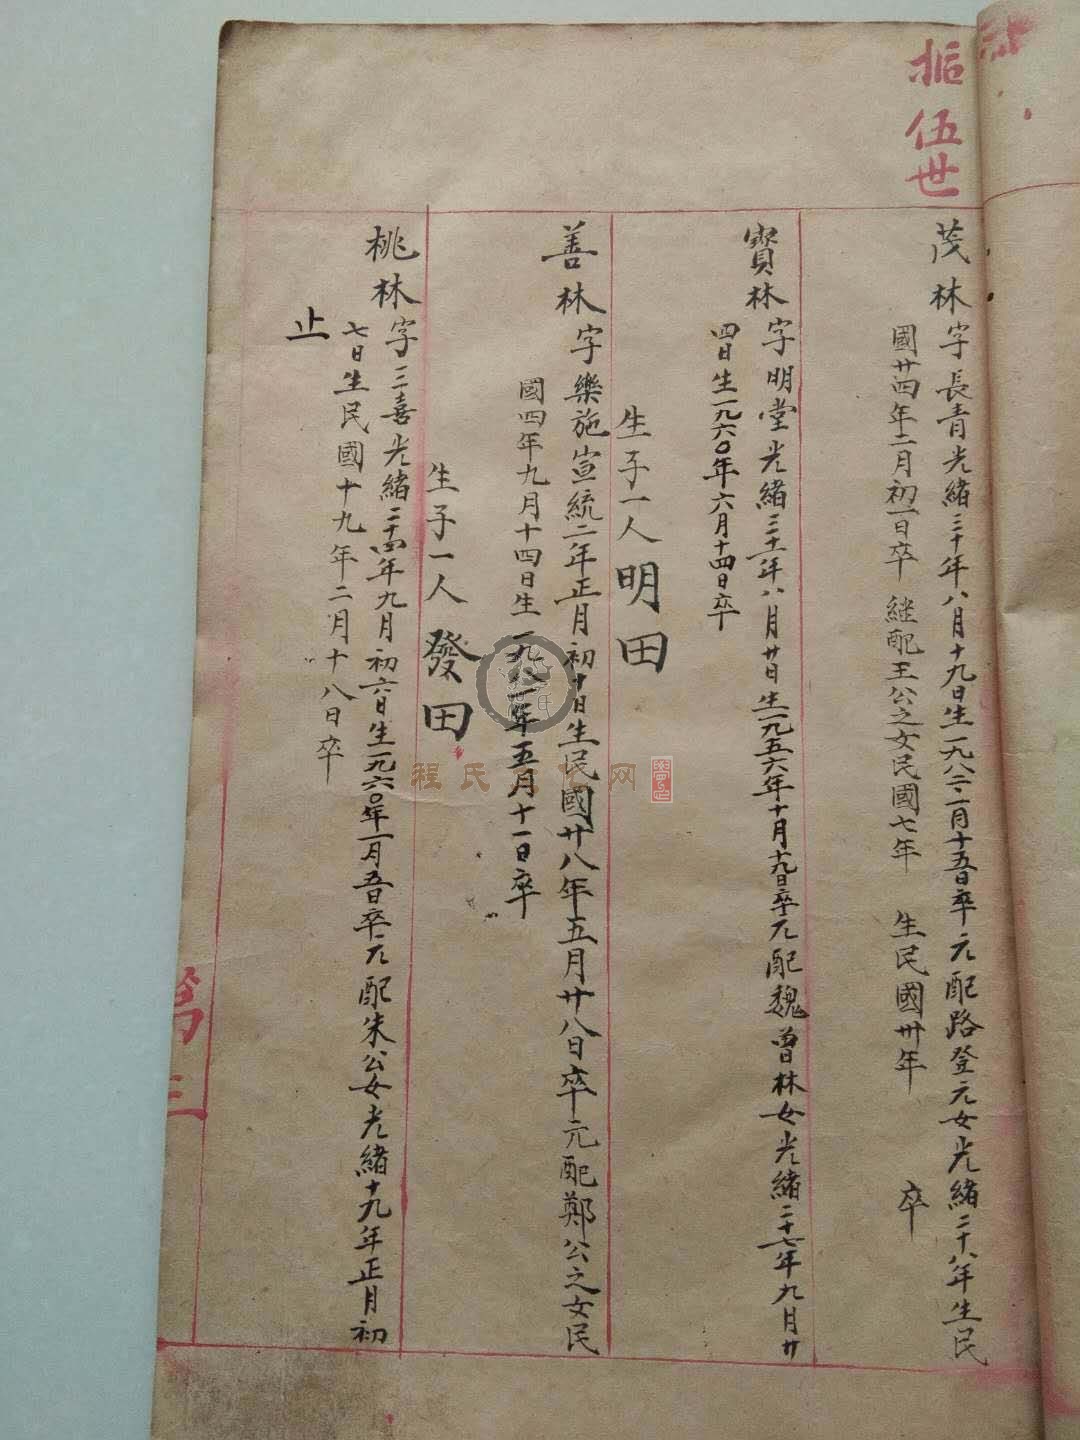 拾伍世
茂林字長青光緒三十年八月十九日生一九八二二月十五日卒元配路登元女光緒二十八年生民
國廿四年二月初一日卒 継配王公之女民國七年 生民國卅年 卒
寳林字明堂光緒三十一年八月廿日生一九五六年十月十九日卒元配魏曾林女光緒二十七年九月廿
四日生一九六〇年六月十四日卒
生子一人明田
善林字樂施宣統二年正月初十日生民國廿八年五月廿八日卒元配鄭公之女民
國四年九月十四日生一九八一年五月十一日卒
生子一人發田
桃林字三喜光緒二十四年九月初六日生一九六〇年一月五日卒元配朱公女光緒十九年正月初
七日生民國十九年二月十八日卒
止
三
程氏文化网